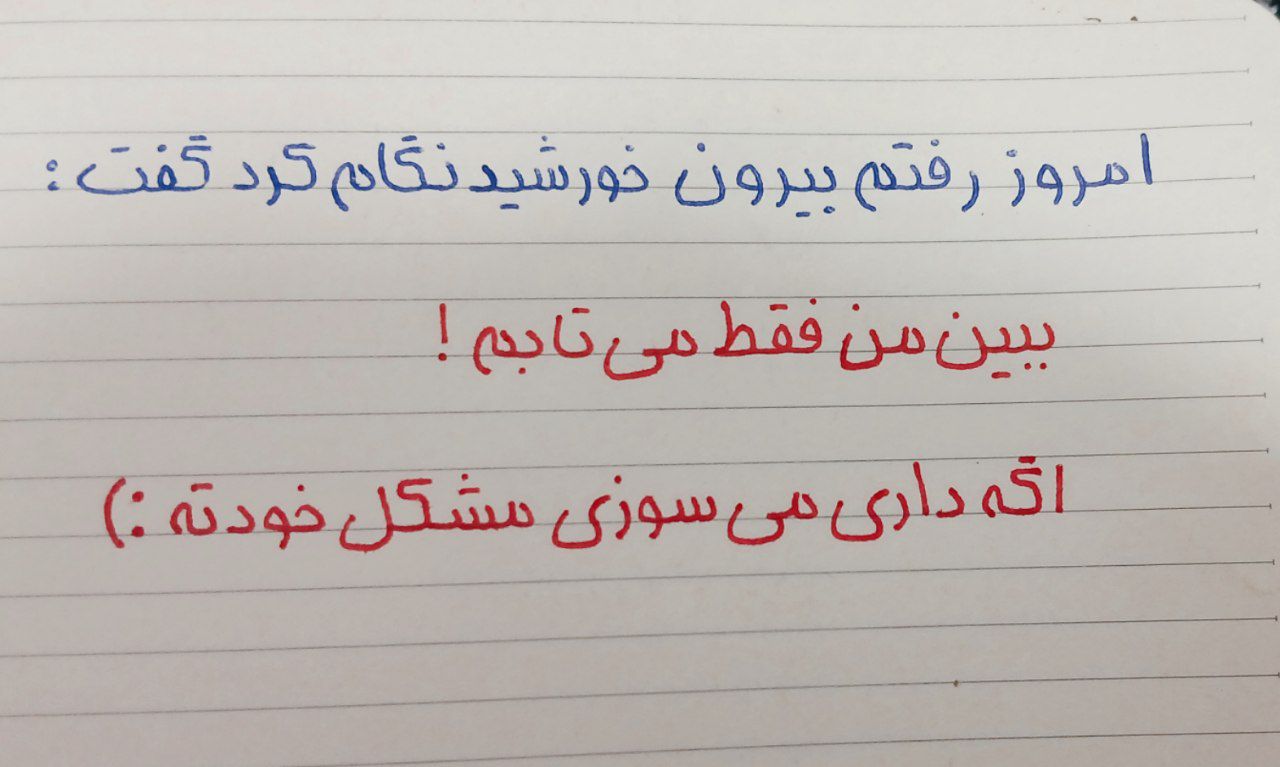 امروز رفتم بیرون خورشید نگام کرد گفت :
ببین من فقط می تابم !
اگه داری می سوزی مشکل خودته :)